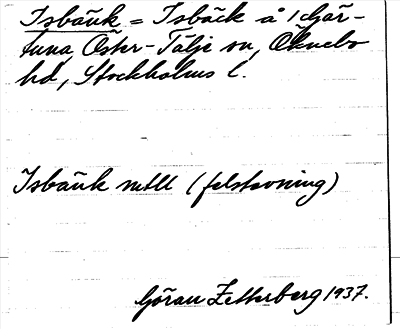 Isbänk = Isbäck å 1 Hjär-
tuna, Öster-Tälje sn, Öknebo
hd, Stockholms l.
Isbänk mtll (felstavning)
Göran Zetterberg 1937.